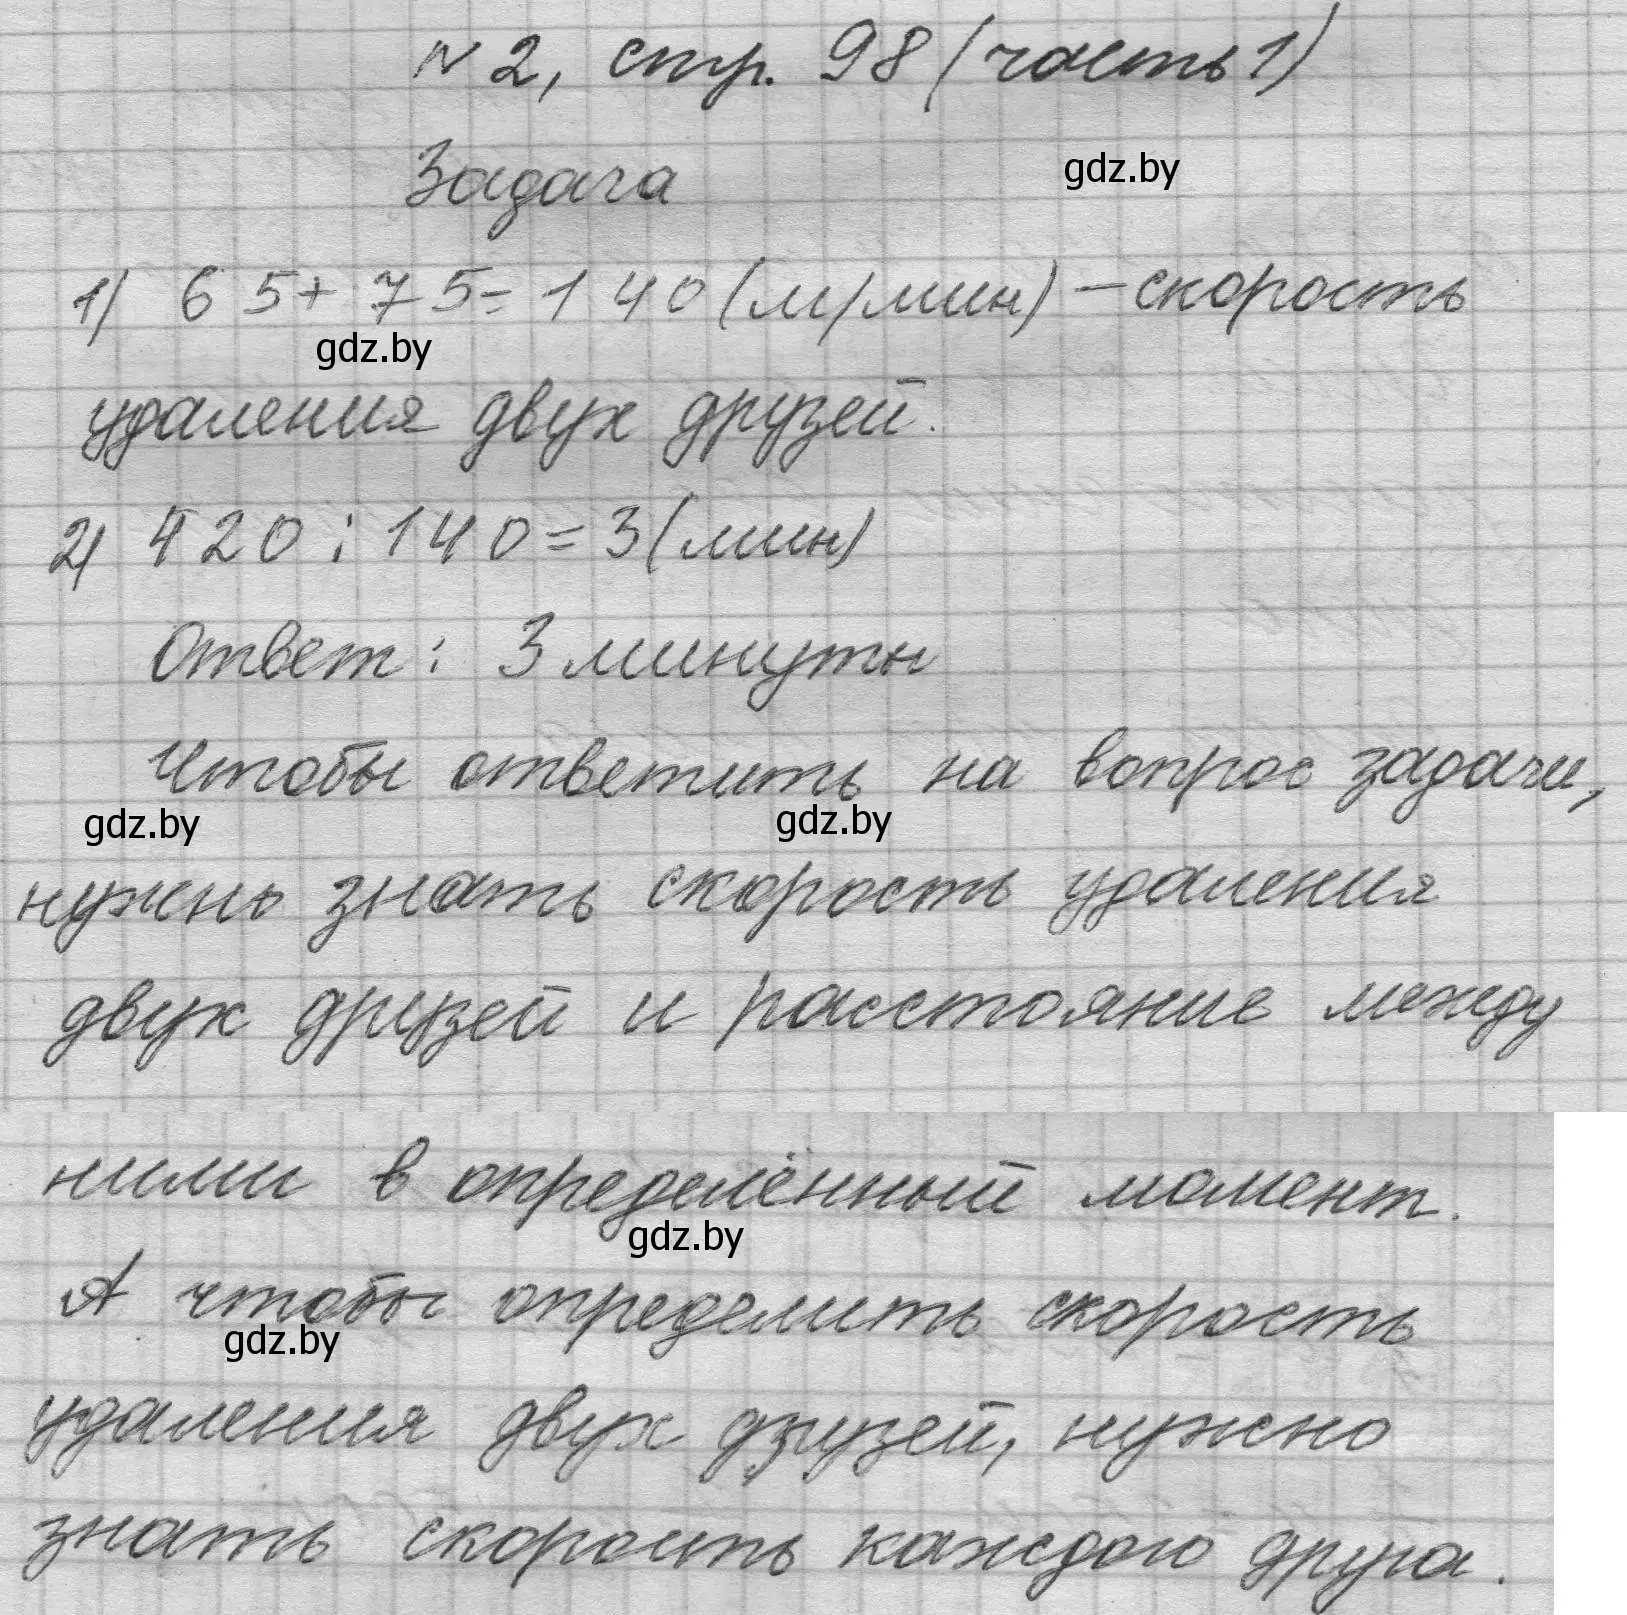 № 2, стр. 98 (часть 1)
Задача
gdz.by
1) 65 + 75 = 140 (м/мин) – скорость
gdz.by
удаления двух друзей.
2) 420 : 140 = 3 (мин)
Ответ: 3 минуты
Чтобы ответить на вопрос задачи,
gdz.by gdz.by
нужно знать скорость удаления
двух друзей и расстояние между
ними в определённый момент.
gdz.by
А чтобы определить скорость
gdz.by
удаления двух друзей, нужно
знать скорость каждого друга.